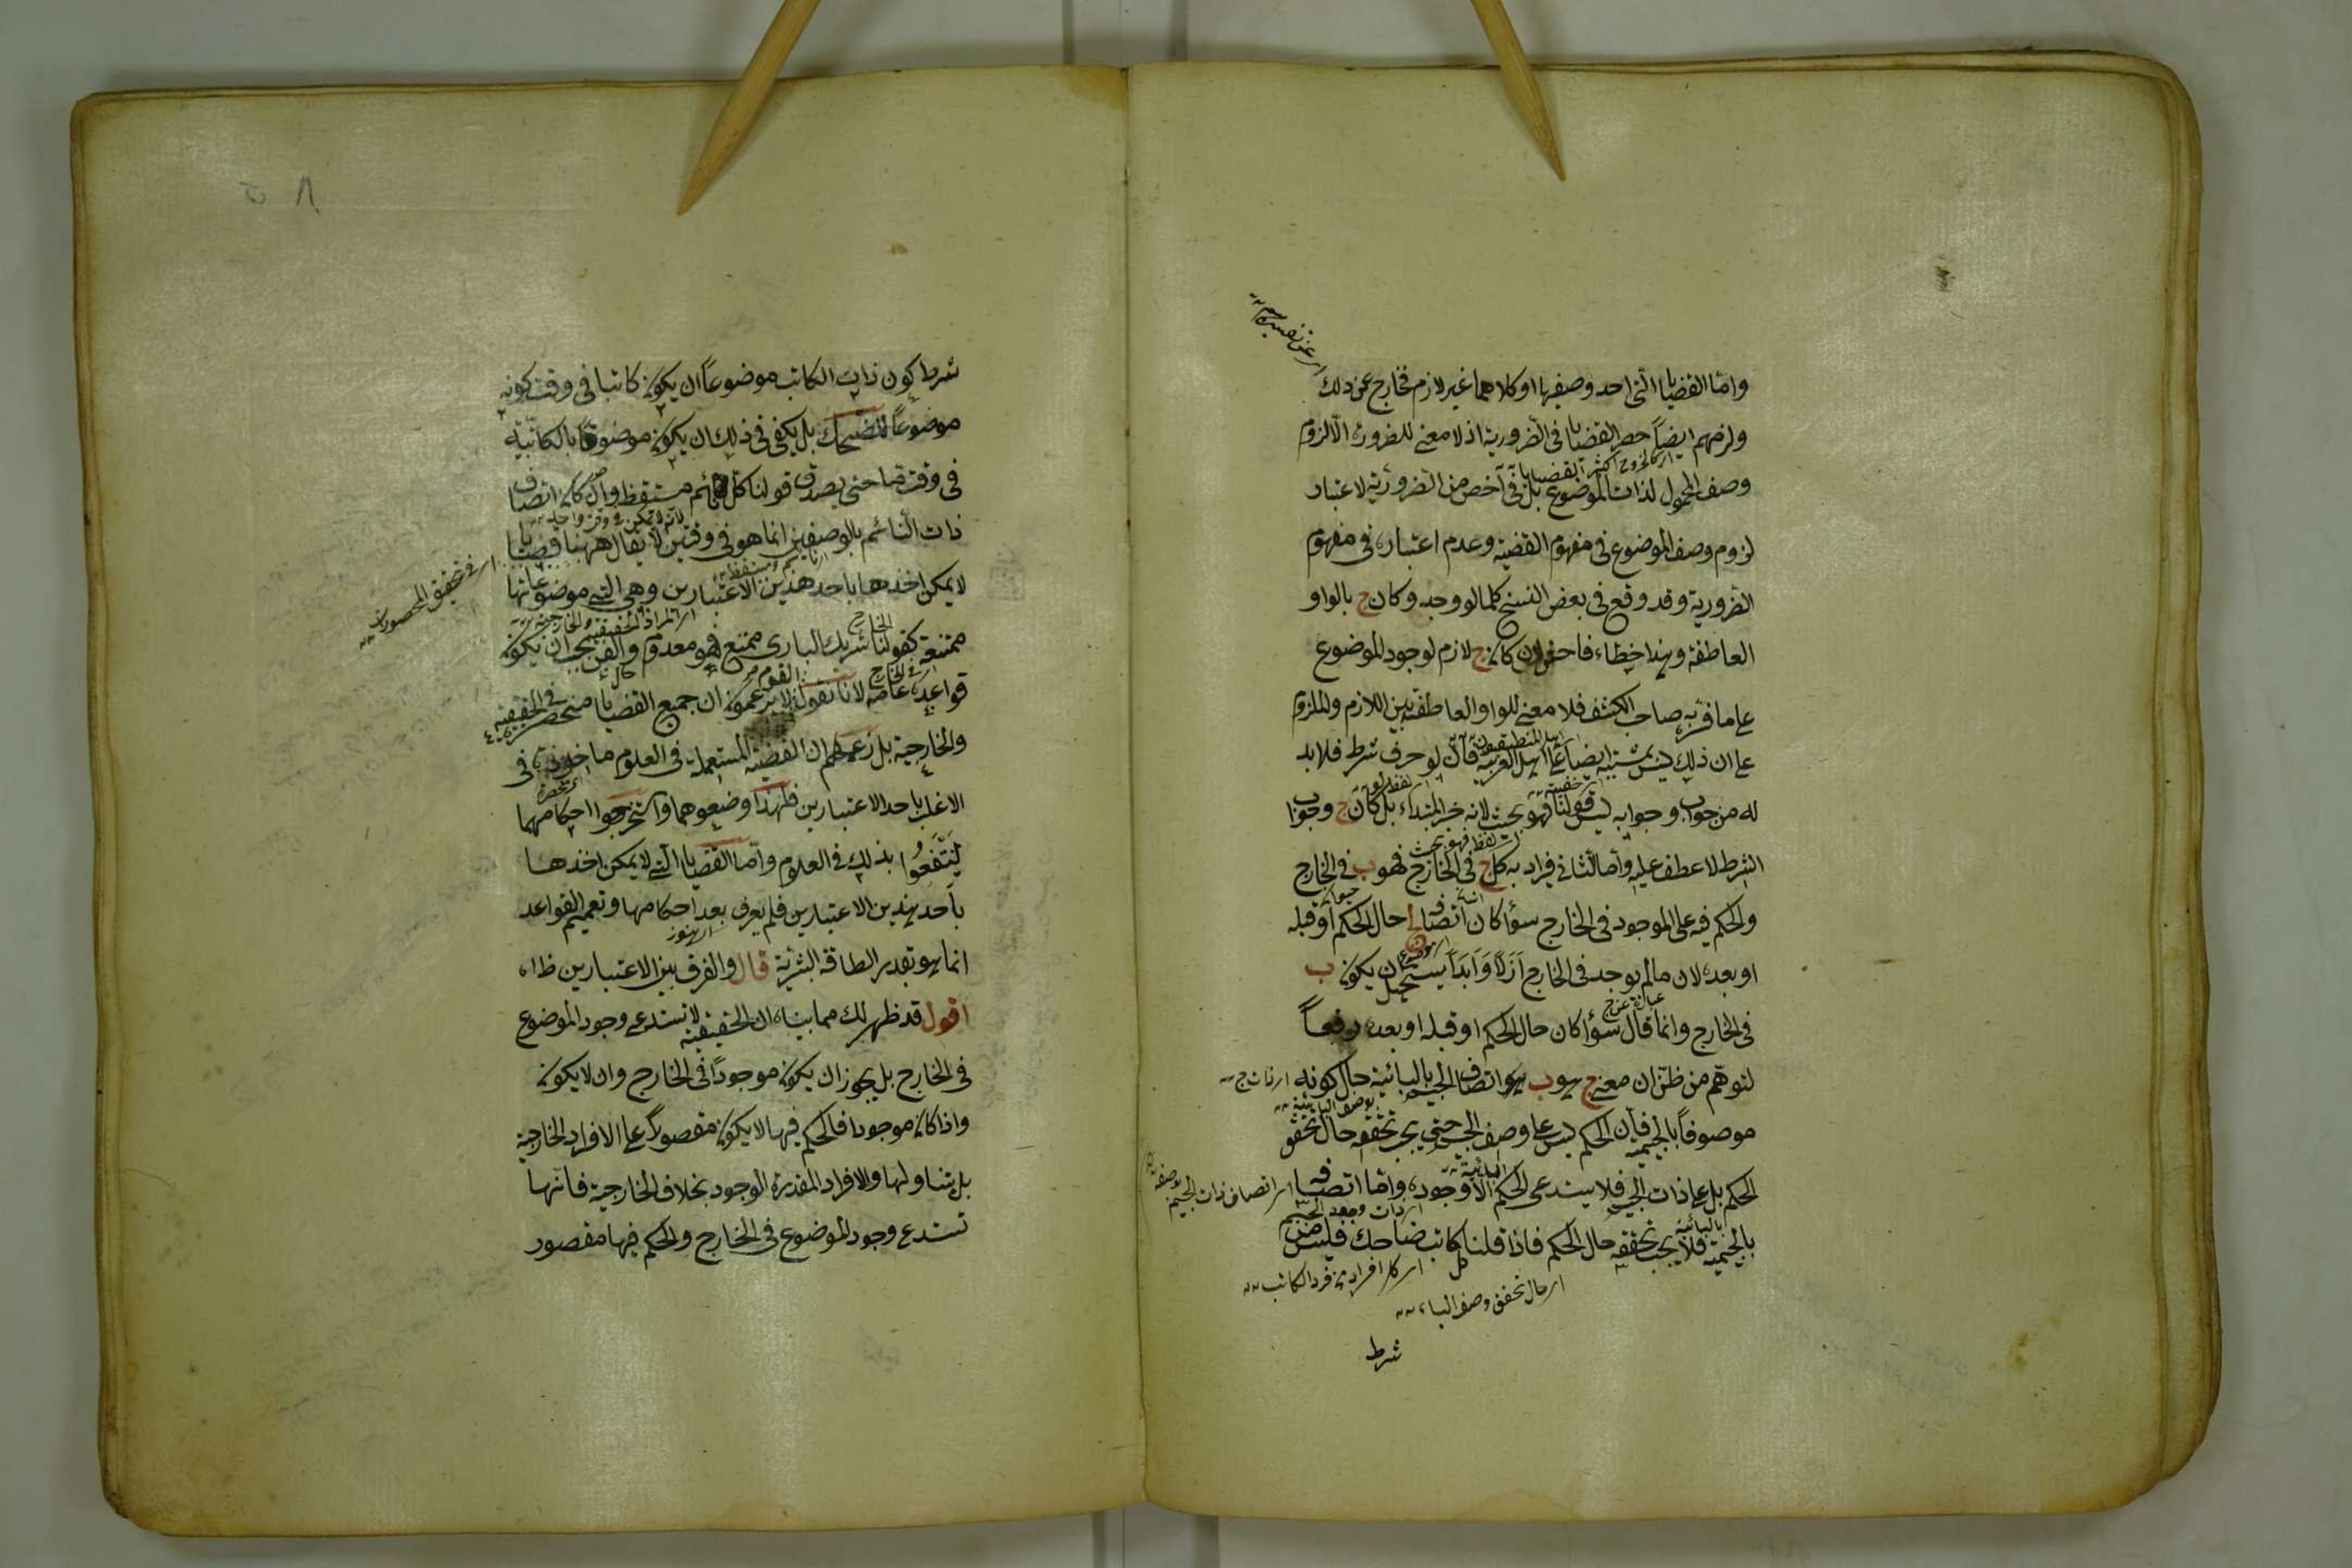 واما القضايا التى احد وصفيها او كلاهما غير لازم فخارج عن ذلك
ولزمهم ايضاً حصر القضايا فى الضرورية اذ لا معنى للضرورة الا لزوم
وصف المحمول لذات الموضوع بل فى اخص من الضرورية لاعتبار
لزوم وصف الموضوع فى مفهوم القضية وعدم اعتباره فى مفهوم
الضرورية وقد وقع فى بعض النسخ كلما لو وجد وكان ج بالواو
العاطفة وهذا خطاء فاحش لان كان ج لازم لوجود الموضوع
على ما فسّر به صاحب الكشف فلا معنى للواو العاطفة بين اللازم والملزوم
على ان ذلك ليس بمشتبه ايضاً على اهل العربية فان لو حرف شرط فلا بد
له من جواب وجوابه ليس قولنا فهو بحيث لانه خبر المبتداء بل كان ج وجواب
الشرط لا عطف عليه واما الثانى فيراد به كل ج فى الخارج فهو ب فى الخارج
والحكم فيه على الموجود فى الخارج سواء كان اتصافه حال الحكم او قبله
او بعده لان ما لم يوجد فى الخارج ازلاً وابداً يستحيل ان يكون ب
فى الخارج وانما قال سواء كان حال الحكم او قبله او بعده دفعاً
لتوهم من ظن ان معنى ج هو ب هو اتصاف الجيم بالبائية حال كونه
موصوفاً بالجيمية فان الحكم ليس على وصف الجيم حتى يجب تحققه حال تحقق
الحكم بل على ذات الجيم فلا يستدعى الحكم الا وجوده واما اتصافه
بالجيمية فلا يجب تحققه حال الحكم فاذا قلنا كل كاتب ضاحك فليس من
اى حال تحقق وصف الباء
شرط
شرط كون ذات الكاتب موضوعاً ان يكون كاتبا فى وقت كونه
موضوعاً للضحك بل يكفى فى ذلك ان يكون موصوفاً بالكاتبية
فى وقت ما حتى يصدق قولنا كل نائم مستيقظ وان كان اتصاف
ذات النائم بالوصفين انما هو فى وقتين لا يقال ههنا قضايا
لا يمكن اخذها باحد هذين الاعتبارين وهى التى موضوعاتها
اى فى تحقيق المحصورات
ممتنعة كقولنا شريك البارى ممتنع فهو معدوم والفن يجب ان يكون
قواعده عامة لانا نقول القوم لا يزعمون ان جميع القضايا منحصرة فى الحقيقية
والخارجية بل زعمهم ان القضية المستعملة فى العلوم ماخوذة فى
الاغلب باحد الاعتبارين فلهذا وضعوهما واستخرجوا احكامهما
لينتفعوا بذلك فى العلوم واما القضايا التى لا يمكن اخذها
باحد هذين الاعتبارين فلم يعرف بعد احكامها وتعميم القواعد
انما هو بقدر الطاقة البشرية قال والفرق بين الاعتبارين ظاه
اقول قد ظهر لك مما بيناه ان الحقيقية لا تستدعى وجود الموضوع
فى الخارج بل يجوز ان يكون موجوداً فى الخارج وان لا يكون
واذا كان موجودا فالحكم فيها لا يكون مقصوراً على الافراد الخارجية
بل تناولها والافراد المقدرة الوجود بخلاف الخارجية فانها
تستدعى وجود الموضوع فى الخارج والحكم فيها مقصور